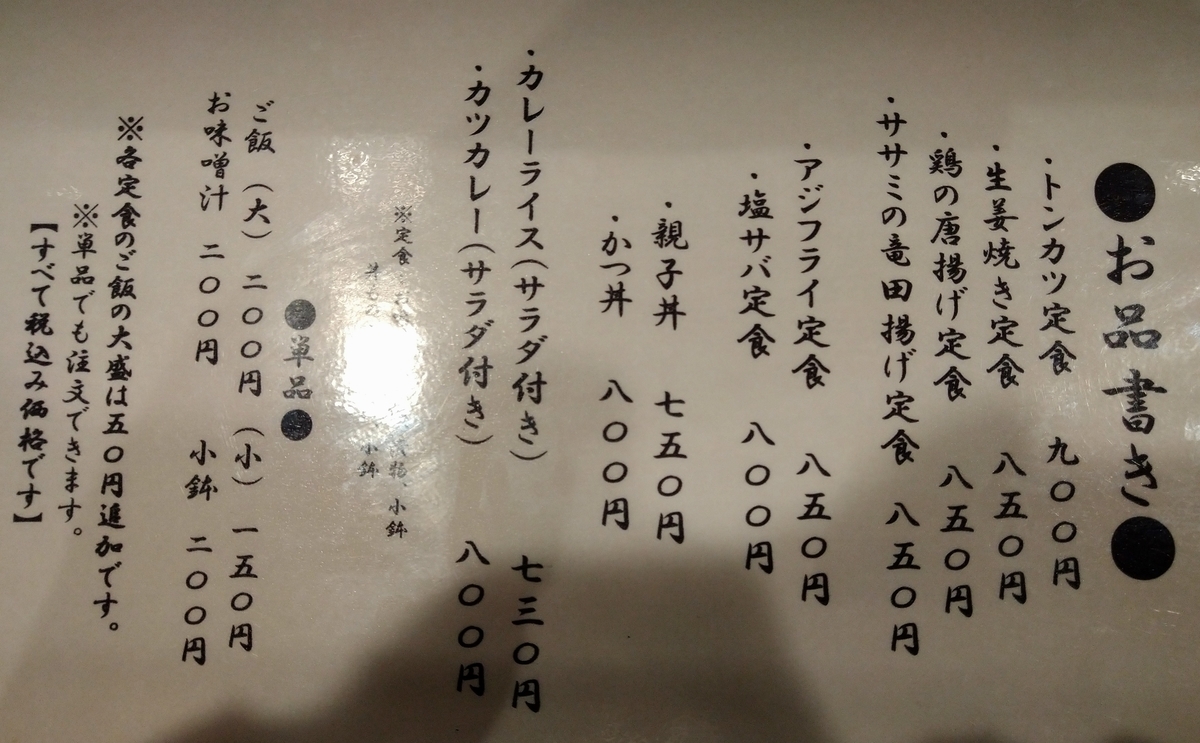 ●お品書き●
・トンカツ定食 九〇〇円
・生姜焼き定食 八五〇円
・鶏の唐揚げ定食 八五〇円
・ササミの竜田揚げ定食 八五〇円
・アジフライ定食 八五〇円
・塩サバ定食 八〇〇円
・親子丼 七五〇円
・かつ丼 八〇〇円
・カレーライス(サラダ付き) 七三〇円
・カツカレー(サラダ付き) 八〇〇円
※定食 小鉢
小鉢
●単品●
ご飯 (大) 二〇〇円 (小) 一五〇円
お味噌汁 二〇〇円 小鉢 二〇〇円
※各定食のご飯の大盛は五〇円追加です。
※単品でも注文できます。
【すべて税込み価格です】